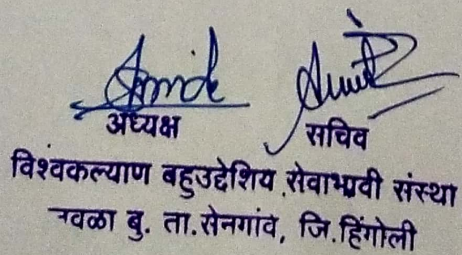 अध्यक्ष सचिव
विश्वकल्याण बहुउद्देशिय सेवाभावी संस्था
नवळा बु. ता.सेनगांव, जि.हिंगोली